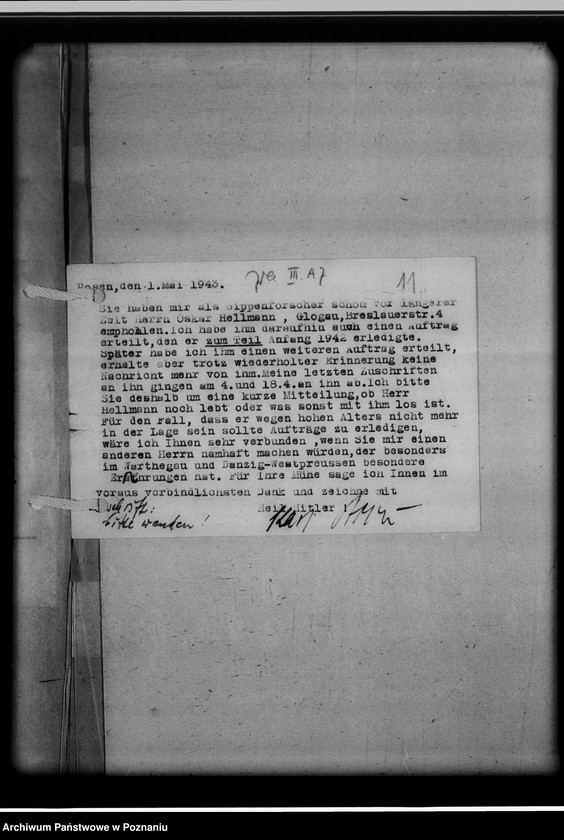 Posen,den 1.Mai 1943.
III. A7
11
Sie haben mir als Sippenforscher schon vor längerer
Zeit Herrn Oskar Hellmann , Glogau,Breslauerstr.4
empfohlen.Ich habe ihm daraufhin auch einen Auftrag
erteilt,den er zum Teil Anfang 1942 erledigte.
Später habe ich ihm einen weiteren Auftrag erteilt,
erhalte aber trotz wiederholter Erinnerung keine
Nachricht mehr von ihm.Meine letzten Zuschriften
an ihn gingen am 4.und 18.4.an ihn ab.Ich bitte
Sie deshalb um eine kurze Mitteilung,ob Herr
Hellmann noch lebt oder was sonst mit ihm los ist.
Für den Fall, dass er wegen hohen Alters nicht mehr
in der Lage sein sollte Aufträge zu erledigen,
wäre ich Ihnen sehr verbunden ,wenn Sie mir einen
anderen Herrn namhaft machen würden,der besonders
im Warthegau und Danzig-Westpreussen besondere
Erfahrungen hat. Für Ihre Mühe sage ich Ihnen im
voraus verbindlichsten Dank und zeichne mit
Heil Hitler !
bitte wenden !
Karl
Archiwum Państwowe w Poznaniu